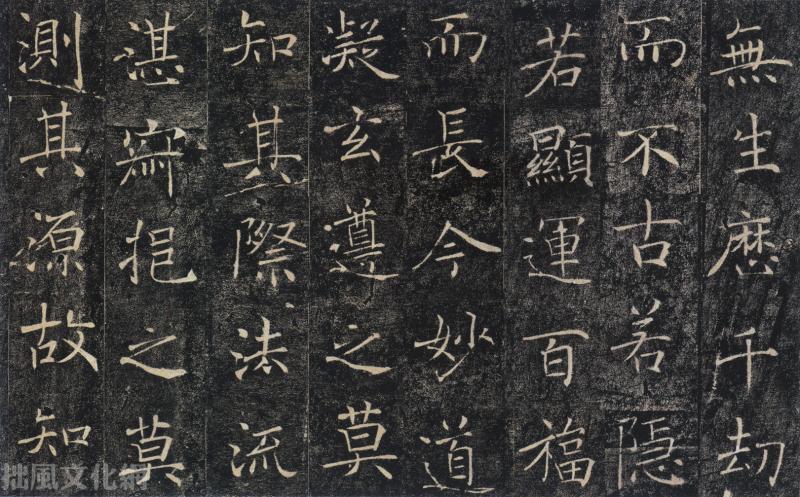 無生歷千劫
而不古若隱
若顯運百福
而長今妙道
凝玄遵之莫
知其際法流
湛寂挹之莫
測其源故知
拙風文化網